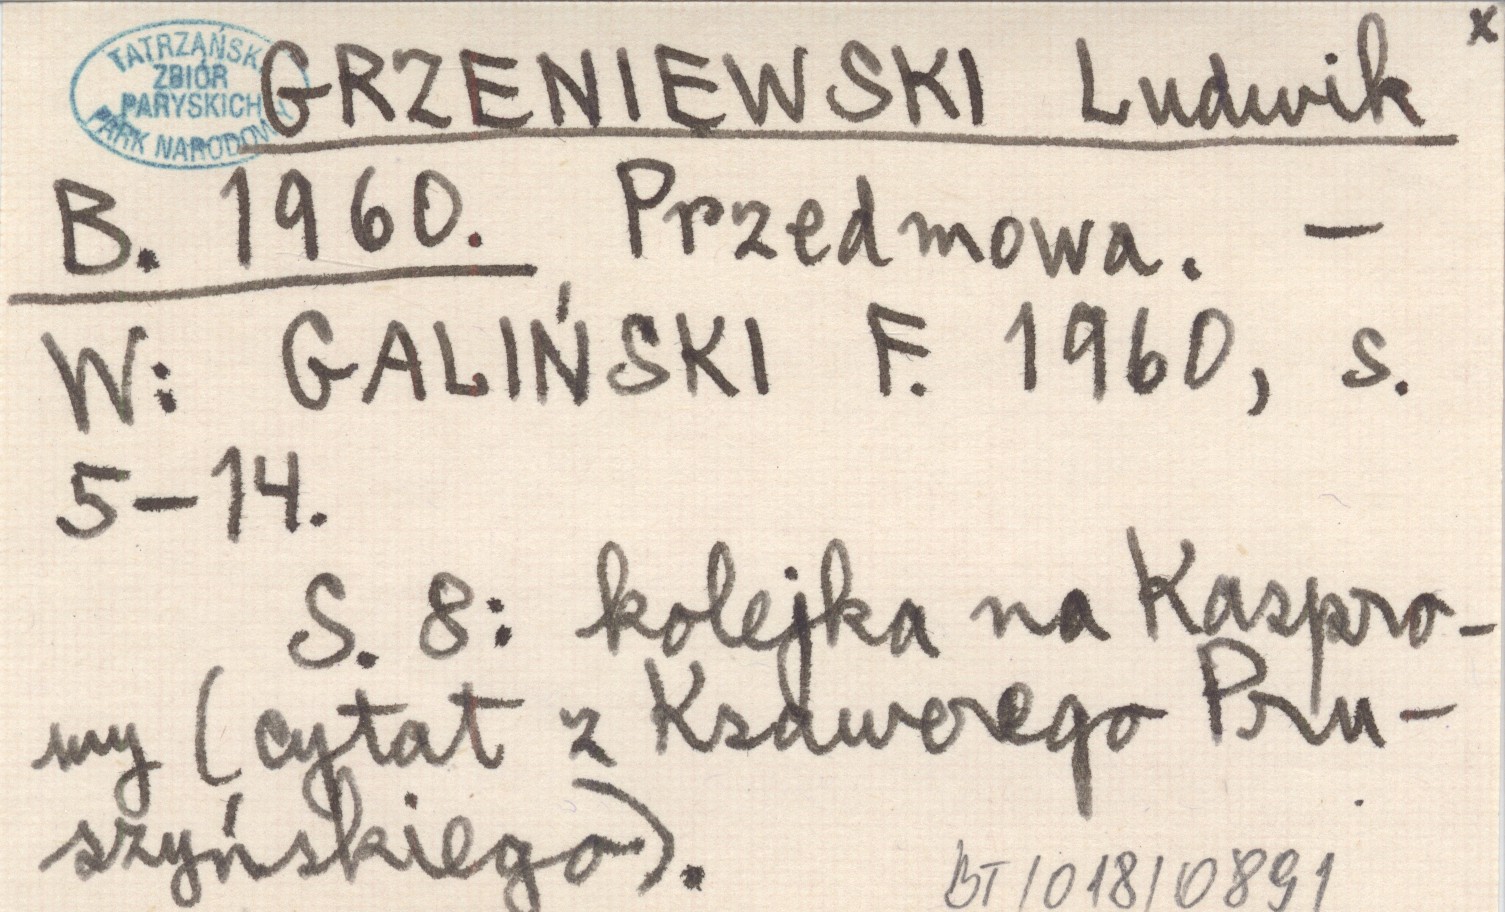 TATRZAŃSK
ZBIÓR
PARYSKICH
PARK NARODOW
x
GRZENIEWSKI Ludwik
B. 1960. Przedmowa. –
W: GALIŃSKI F. 1960, s.
5–14.
S. 8: kolejka na Kaspro-
wy (cytat z Ksawerego Pru-
szyńskiego).
BT/018/0891